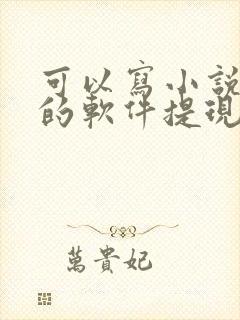 可以寫小說
的軟件提現
萬貴妃